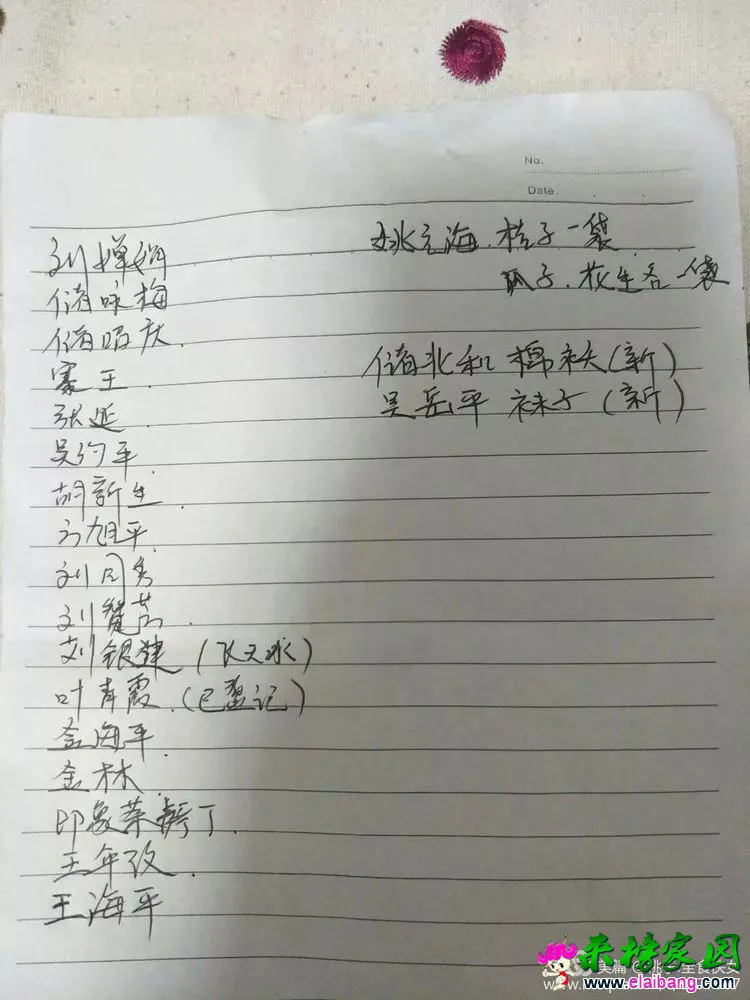 No.
Date.
刘婵娟
储咏梅
储昭庆
寨王
张延
吴约平
胡新生
方旭平
刘同秀
刘赞芳
刘银建(飞天冰)
叶青霞.(巴盈记)
金海平
金林
印象茶 丁
王年政
王海平
姚立海.桔子一袋
瓜子.花生各一袋
储北和 棉袄(新)
吴岳平 袜子(新)
来榜家园
www.elaibang.com
美篇